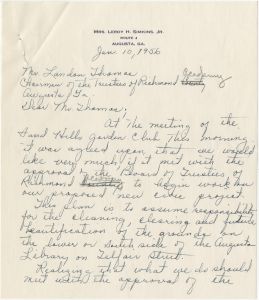 MRS. LEROY H. SIMKINS, JR.
ROUTE 4
AUGUSTA, GA.
Jan 10, 1956
Mr. Landon Thomas
Academy
Chairman of the Trustees of Richmond County
Augusta, Ga.
Dear Mr. Thomas:
At the meeting of the
Sand Hills Garden Club this morning
it was agreed upon, that we would
like very much, if it met with the
approval of the Board of Trustees of
Academy
Richmond County to begin work on
our proposed new civic project.
This plan is to assume responsibility
for the cleaning, clearing and future
beautification of the grounds on
the lower or south side of the Augusta
Library on Telfair Street.
Realizing that what we do should
met with the approval of the